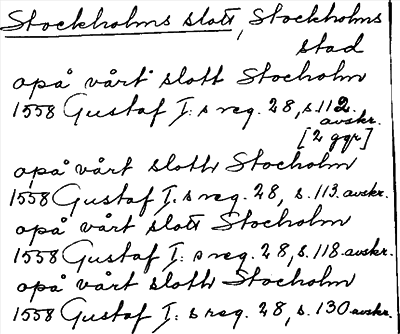 Stockholms slott, Stockholms
stad
opå vårt slott Stocholm
1558 Gustaf I:s reg. 28, s.112.
avskr.
[2 ggr]
opå vårt sloth Stocholm
1558 Gustaf I:s reg. 28, s.113 avskr.
opå vårt slott Stocholm
1558 Gustaf I:s reg. 28, s.118 avskr.
opå vårt sloth Stocholm
1558 Gustaf I:s reg. 28, s.130 avskr.